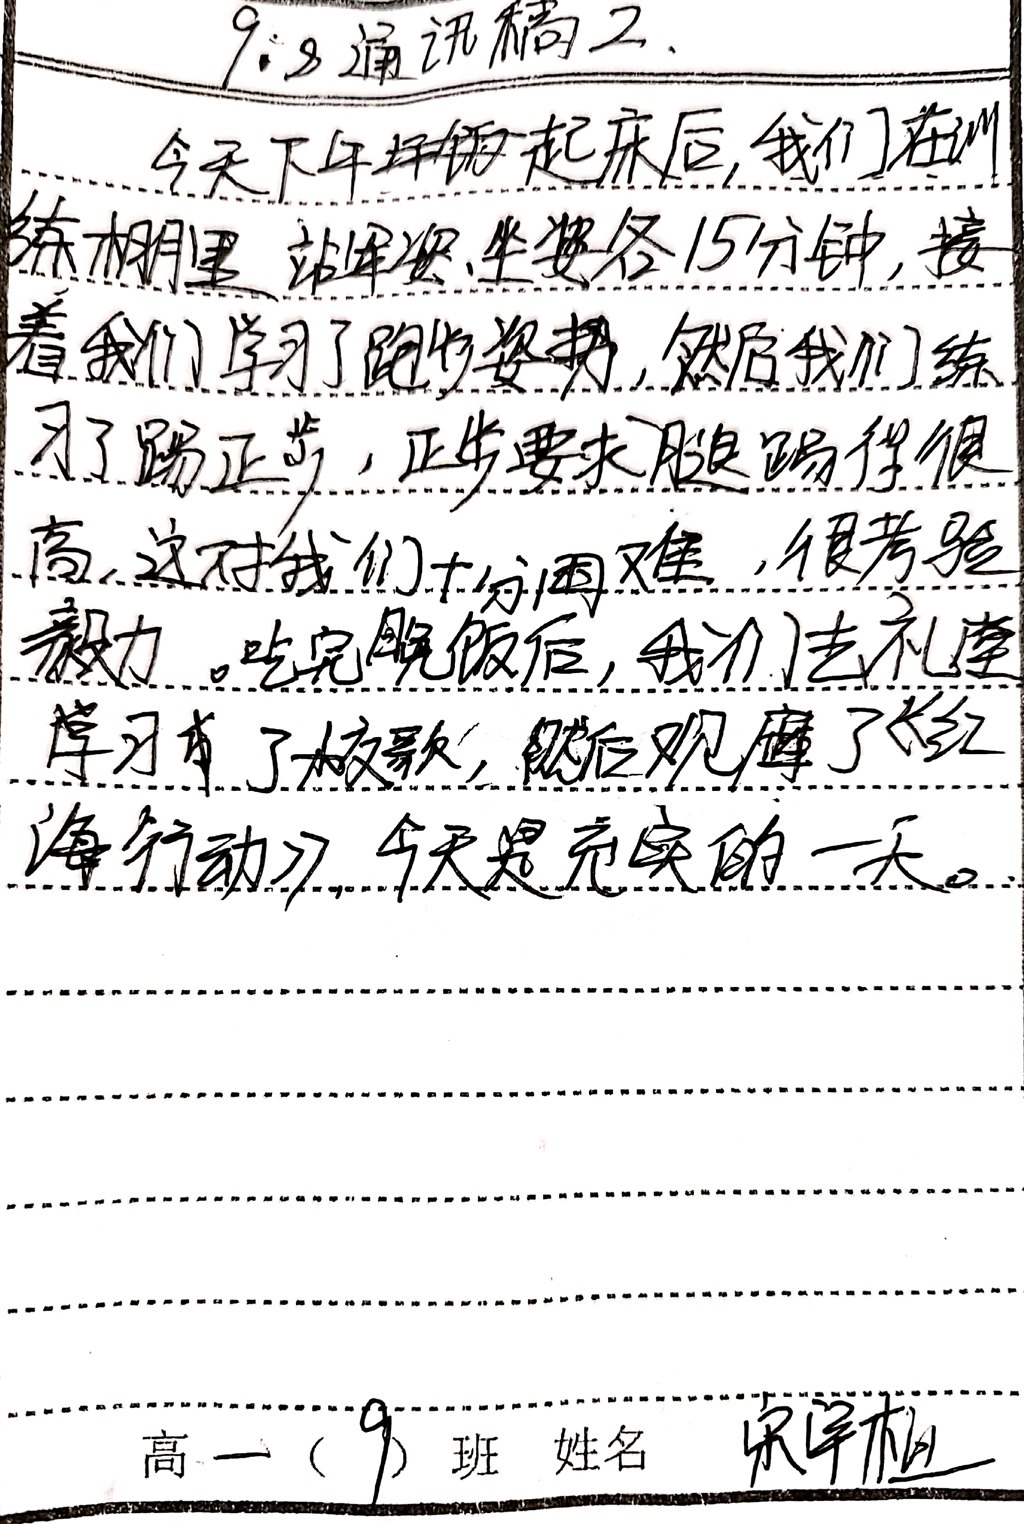 9.8通讯稿2.
今天下午起床后,我们在训
练棚里 站军姿、坐姿各15分钟,接
着我们学习了跑步姿势,然后我们练
习了踢正步,正步要求腿踢得很
高,这对我们十分困难,很考验
毅力。吃完晚饭后,我们去礼堂
学习了校歌,然后观摩了《红
海行动》,今天是充实的一天。
高一(9)班 姓名 宋宇植